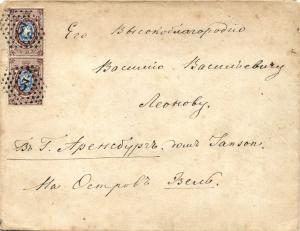 Его Высокоблагородію
Василію Васильевичу
Леонову.
Въ Г. Аренсбургъ. домъ Janson.
На Островъ Эзель.